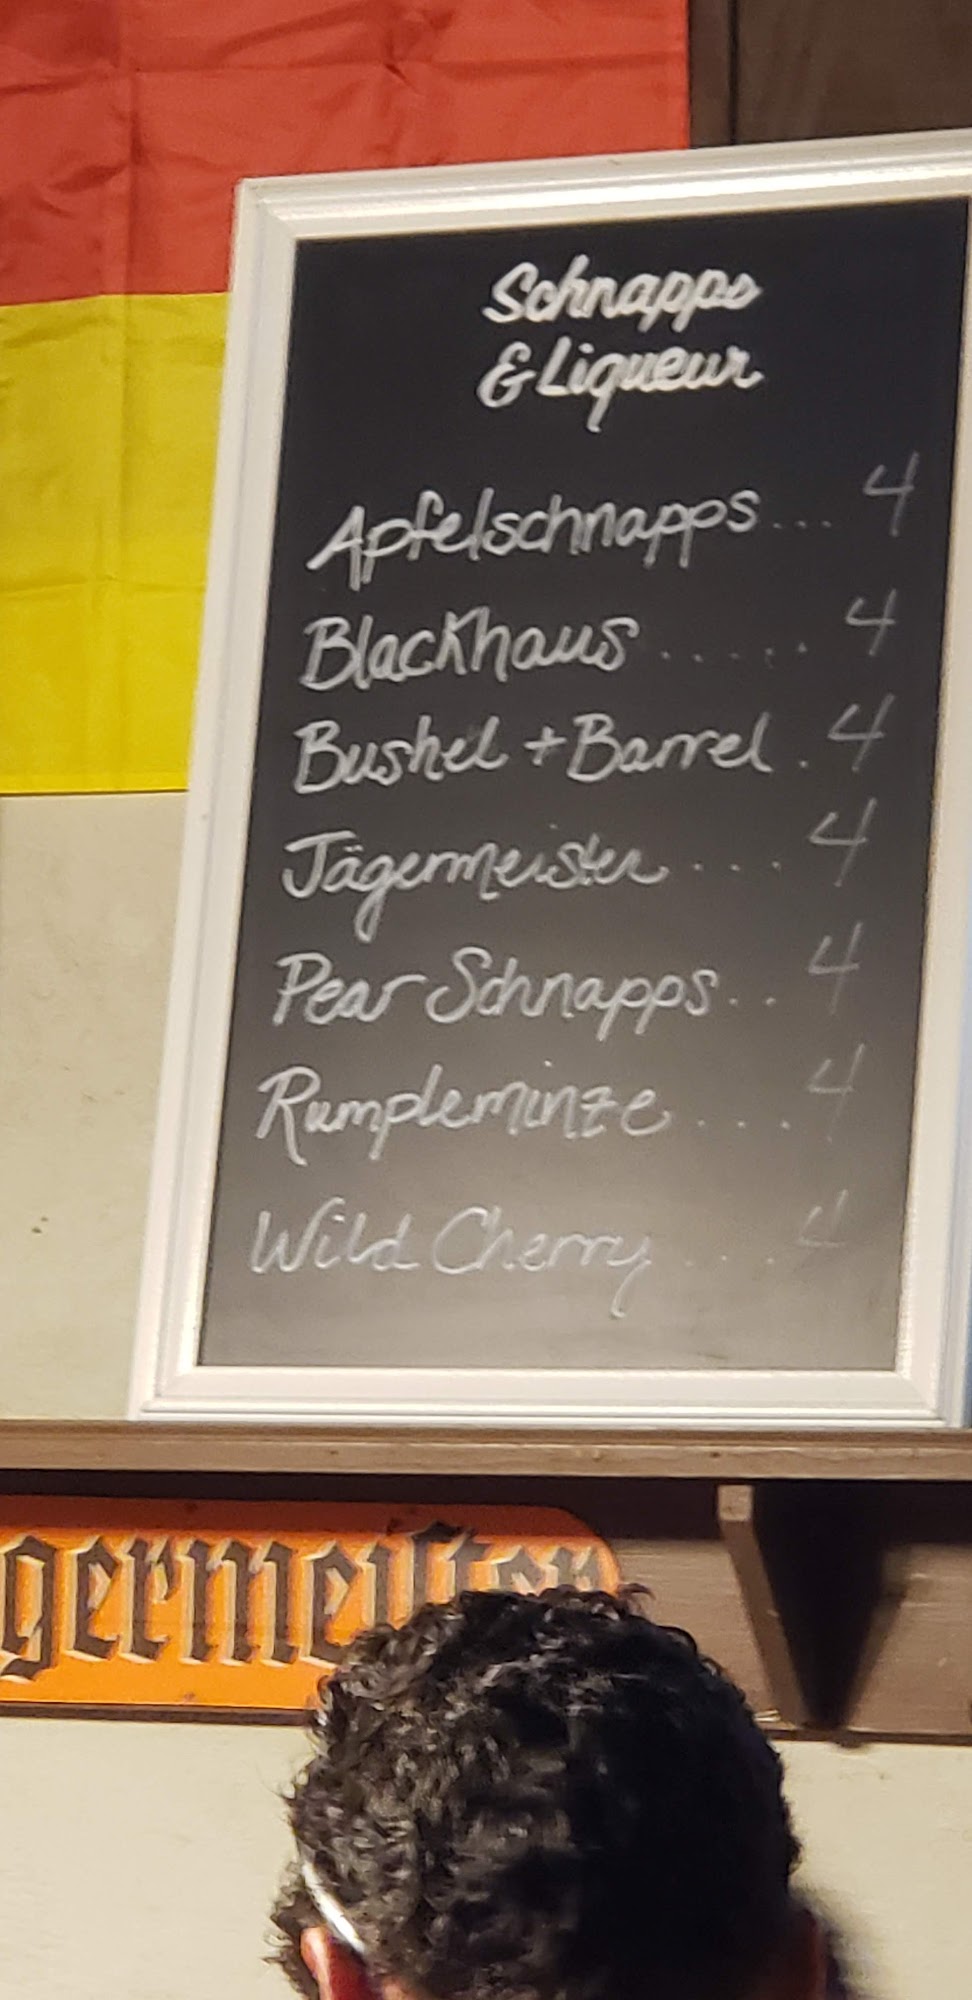 Schnapps
& Liqueur
Apfelschnapps... 4
Blackhaus ..... 4
Bushel + Barrel . 4
Jägermeister .... 4
Pear Schnapps.. 4
Rumpleminze .... 4
Wild Cherry .... 4
germeister